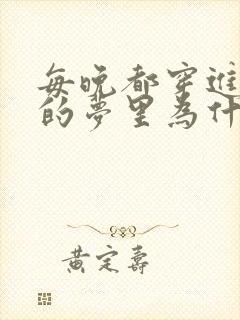 每晚都穿進
的夢里為什
黃定壽